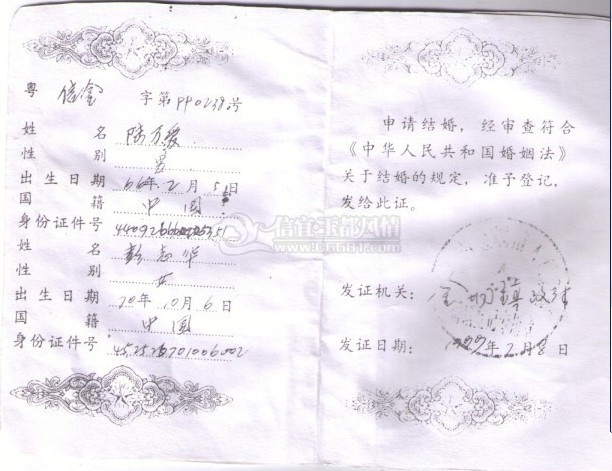 粤 信金 字第PP0238号
姓 名 陆万
性 别 男
出生日期 66年2月5日
国 籍 中国
身份证件号
姓 名 彭志华
性 别 女
出生日期 70年10月6日
国 籍 中国
身份证件号 452526701006002
申请结婚，经审查符合
《中华人民共和国婚姻法》
关于结婚的规定，准予登记，
发给此证。
发证机关： 金垌镇政府
发证日期： 年2月8日
信宜玉都风情
www.xy6681.com